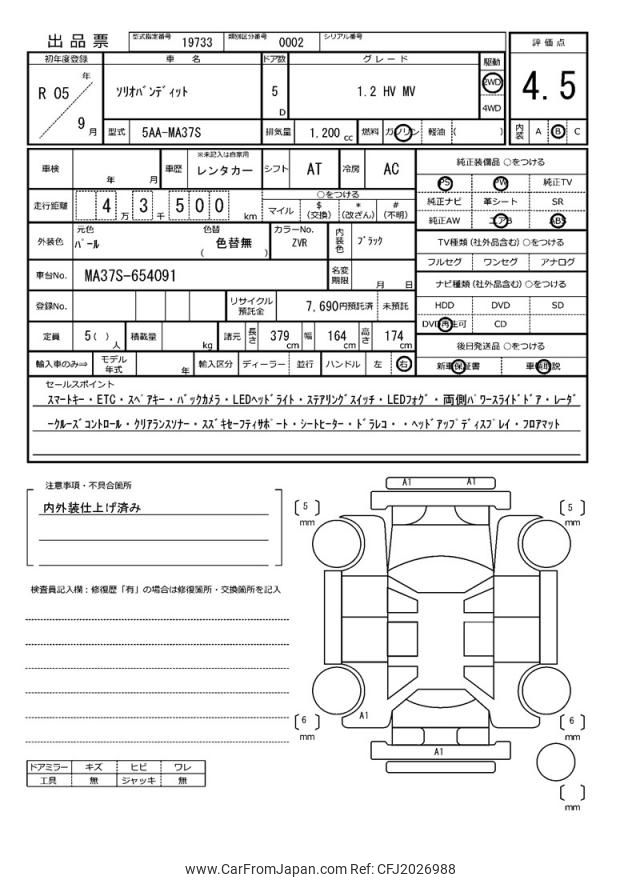 出品票 型式指定番号 19733 類別区分番号 0002 シリアル番号
評価点
4.5
内装 A B C
初年度登録 車名 ドア数 グレード 駆動
R 05 年 9 月
ソリオバンディット 5 D 1.2 HV MV 2WD
4WD
型式 5AA-MA37S 排気量 1.200 cc 燃料 ガソリン 軽油 ( )
車検 年 月 車歴 ※未記入は自家用 レンタカー シフト AT 冷房 AC
走行距離 4 万 3 千 5 0 0 km
○をつける
マイル $ (交換) * (改ざん) # (不明)
外装色 元色 パール 色替 ( 色替無 ) カラーNo. ZVR 内装色 ブラック
車台No. MA37S-654091 名変期限 月 日
登録No. リサイクル預託金 7,690円預託済 未預託
定員 5( ) 人 積載量 kg 諸元 長さ 379 cm 幅 164 cm 高さ 174 cm
輸入車のみ⇒ モデル年式 年 輸入区分 ディーラー 並行 ハンドル 左 右
純正装備品 ○をつける
PS PW 純正TV
純正ナビ 革シート SR
純正AW エアB ABS
TV種類(社外品含む)○をつける
フルセグ ワンセグ アナログ
ナビ種類(社外品含む)○をつける
HDD DVD SD
DVD再生可 CD
後日発送品 ○をつける
新車保証書 車輌取説
セールスポイント
スマートキー・ETC・スペアキー・バックカメラ・LEDヘッドライト・ステアリングスイッチ・LEDフォグ・両側パワースライドドア・レーダ
ークルーズコントロール・クリアランスソナー・スズキセーフティサポート・シートヒーター・ドラレコ・・ヘッドアップディスプレイ・フロアマット
注意事項・不具合箇所
内外装仕上げ済み
検査員記入欄:修復歴「有」の場合は修復箇所・交換箇所を記入
A1 A1
[ 5 ] mm
[ 5 ] mm
[ 6 ] mm
A1
[ 6 ] mm
A1
[ ] mm
ドアミラー キズ ヒビ ワレ
工具 無 ジャッキ 無
www.CarFromJapan.com Ref: CFJ2026988